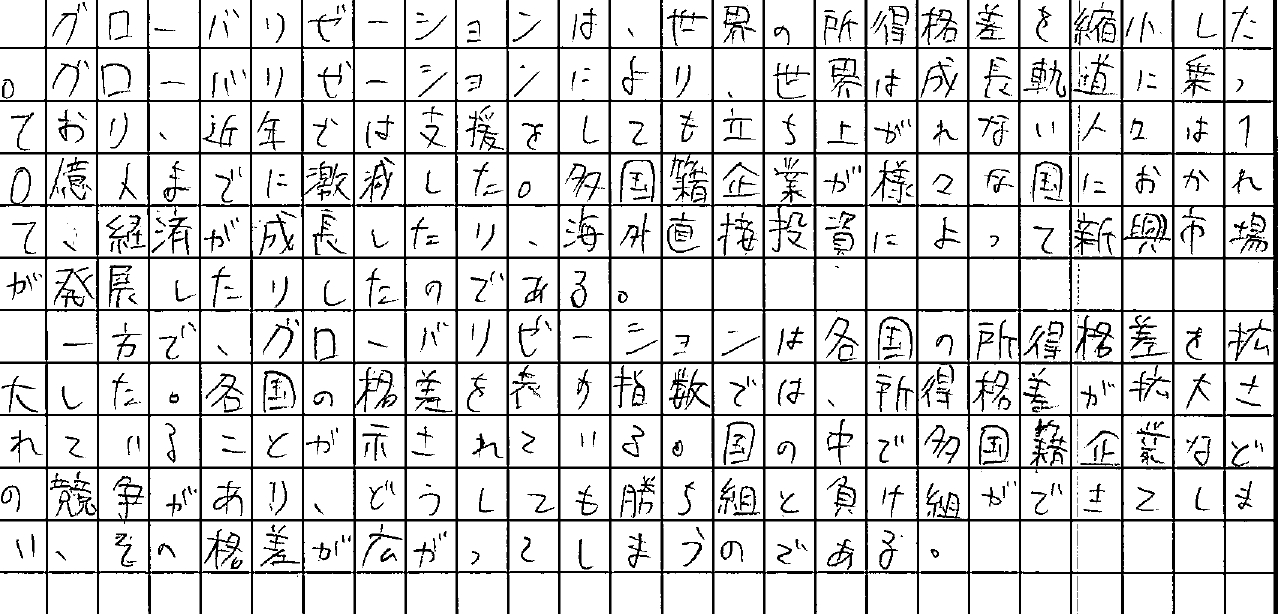 グローバリゼーションは、世界の所得格差を縮小した
。グローバリゼーションにより、世界は成長軌道に乗っ
ており、近年では支援をしても立ち上がれない人々は1
0億人までに激減した。多国籍企業が様々な国におかれ
て、経済が成長したり、海外直接投資によって新興市場
が発展したりしたのである。
一方で、グローバリゼーションは各国の所得格差を拡
大した。各国の格差を表す指数では、所得格差が拡大さ
れていることが示されている。国の中で多国籍企業など
の競争があり、どうしても勝ち組と負け組ができてしま
い、その格差が広がってしまうのである。